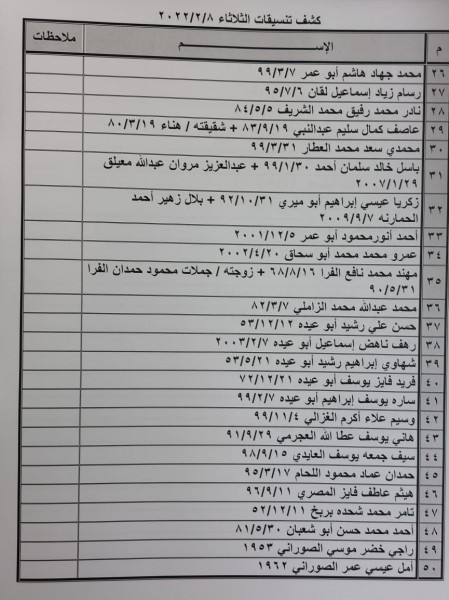 كشف تنسيقات الثلاثاء ٢٠٢٢/٢/٨
م الإســـم ملاحظات
٢٦ محمد جهاد هاشم أبو عمر ٩٩/٣/٧
٢٧ رسام زياد إسماعيل لقان ٩٥/٧/٦
٢٨ نادر محمد رفيق محمد الشريف ٨٤/٥/٥
٢٩ عاصف كمال سليم عبدالنبي ٨٣/٩/١٩ + شقيقته / هناء ٨٠/٣/١٩
٣٠ محمدي سعد محمد العطار ٩٩/٣/٣١
٣١ باسل خالد سلمان أحمد ٩٩/١/٣٠ + عبدالعزيز مروان عبدالله معيلق
٢٠٠٧/١/٢٩
٣٢ زكريا عيسي إبراهيم أبو ميري ٩٢/١٠/٣١ + بلال زهير أحمد
الحمارنه ٢٠٠٩/٩/٧
٣٣ أحمد أنورمحمود أبو عمر ٢٠٠١/١٢/٥
٣٤ عمرو محمد محمد أبو سحاق ٢٠٠٢/٤/٢٠
٣٥ مهند محمد نافع الفرا ٦٨/٨/١٦ + زوجته / جملات محمود حمدان الفرا
٩٠/٥/٣١
٣٦ محمد عبدالله محمد الزاملي ٨٢/٣/٧
٣٧ حسن علي رشيد أبو عيده ٥٣/١٢/١٢
٣٨ رهف ناهض إسماعيل أبو عيده ٢٠٠٣/٢/٧
٣٩ شهاوي إبراهيم رشيد أبو عيده ٥٣/٥/٢١
٤٠ فريد فايز يوسف أبو عيده ٧٢/١٢/٢١
٤١ ساره يوسف إبراهيم أبو عيده ٩٩/٢/٧
٤٢ وسيم علاء أكرم الغزالي ٩٩/١١/٤
٤٣ هاني يوسف عطا الله العجرمي ٩١/٩/٢٩
٤٤ سيف جمعه يوسف العايدي ٩٨/٩/١٥
٤٥ حمدان عماد محمود اللحام ٩٥/٣/١٧
٤٦ هيثم عاطف فايز المصري ٩٦/٩/١١
٤٧ تامر محمد شحده بربخ ٥٢/١٢/١١
٤٨ أحمد محمد حسن أبو شعبان ٨١/٥/٣٠
٤٩ راجي خضر موسي الصوراني ١٩٥٣
٥٠ أمل عيسي عمر الصوراني ١٩٦٢